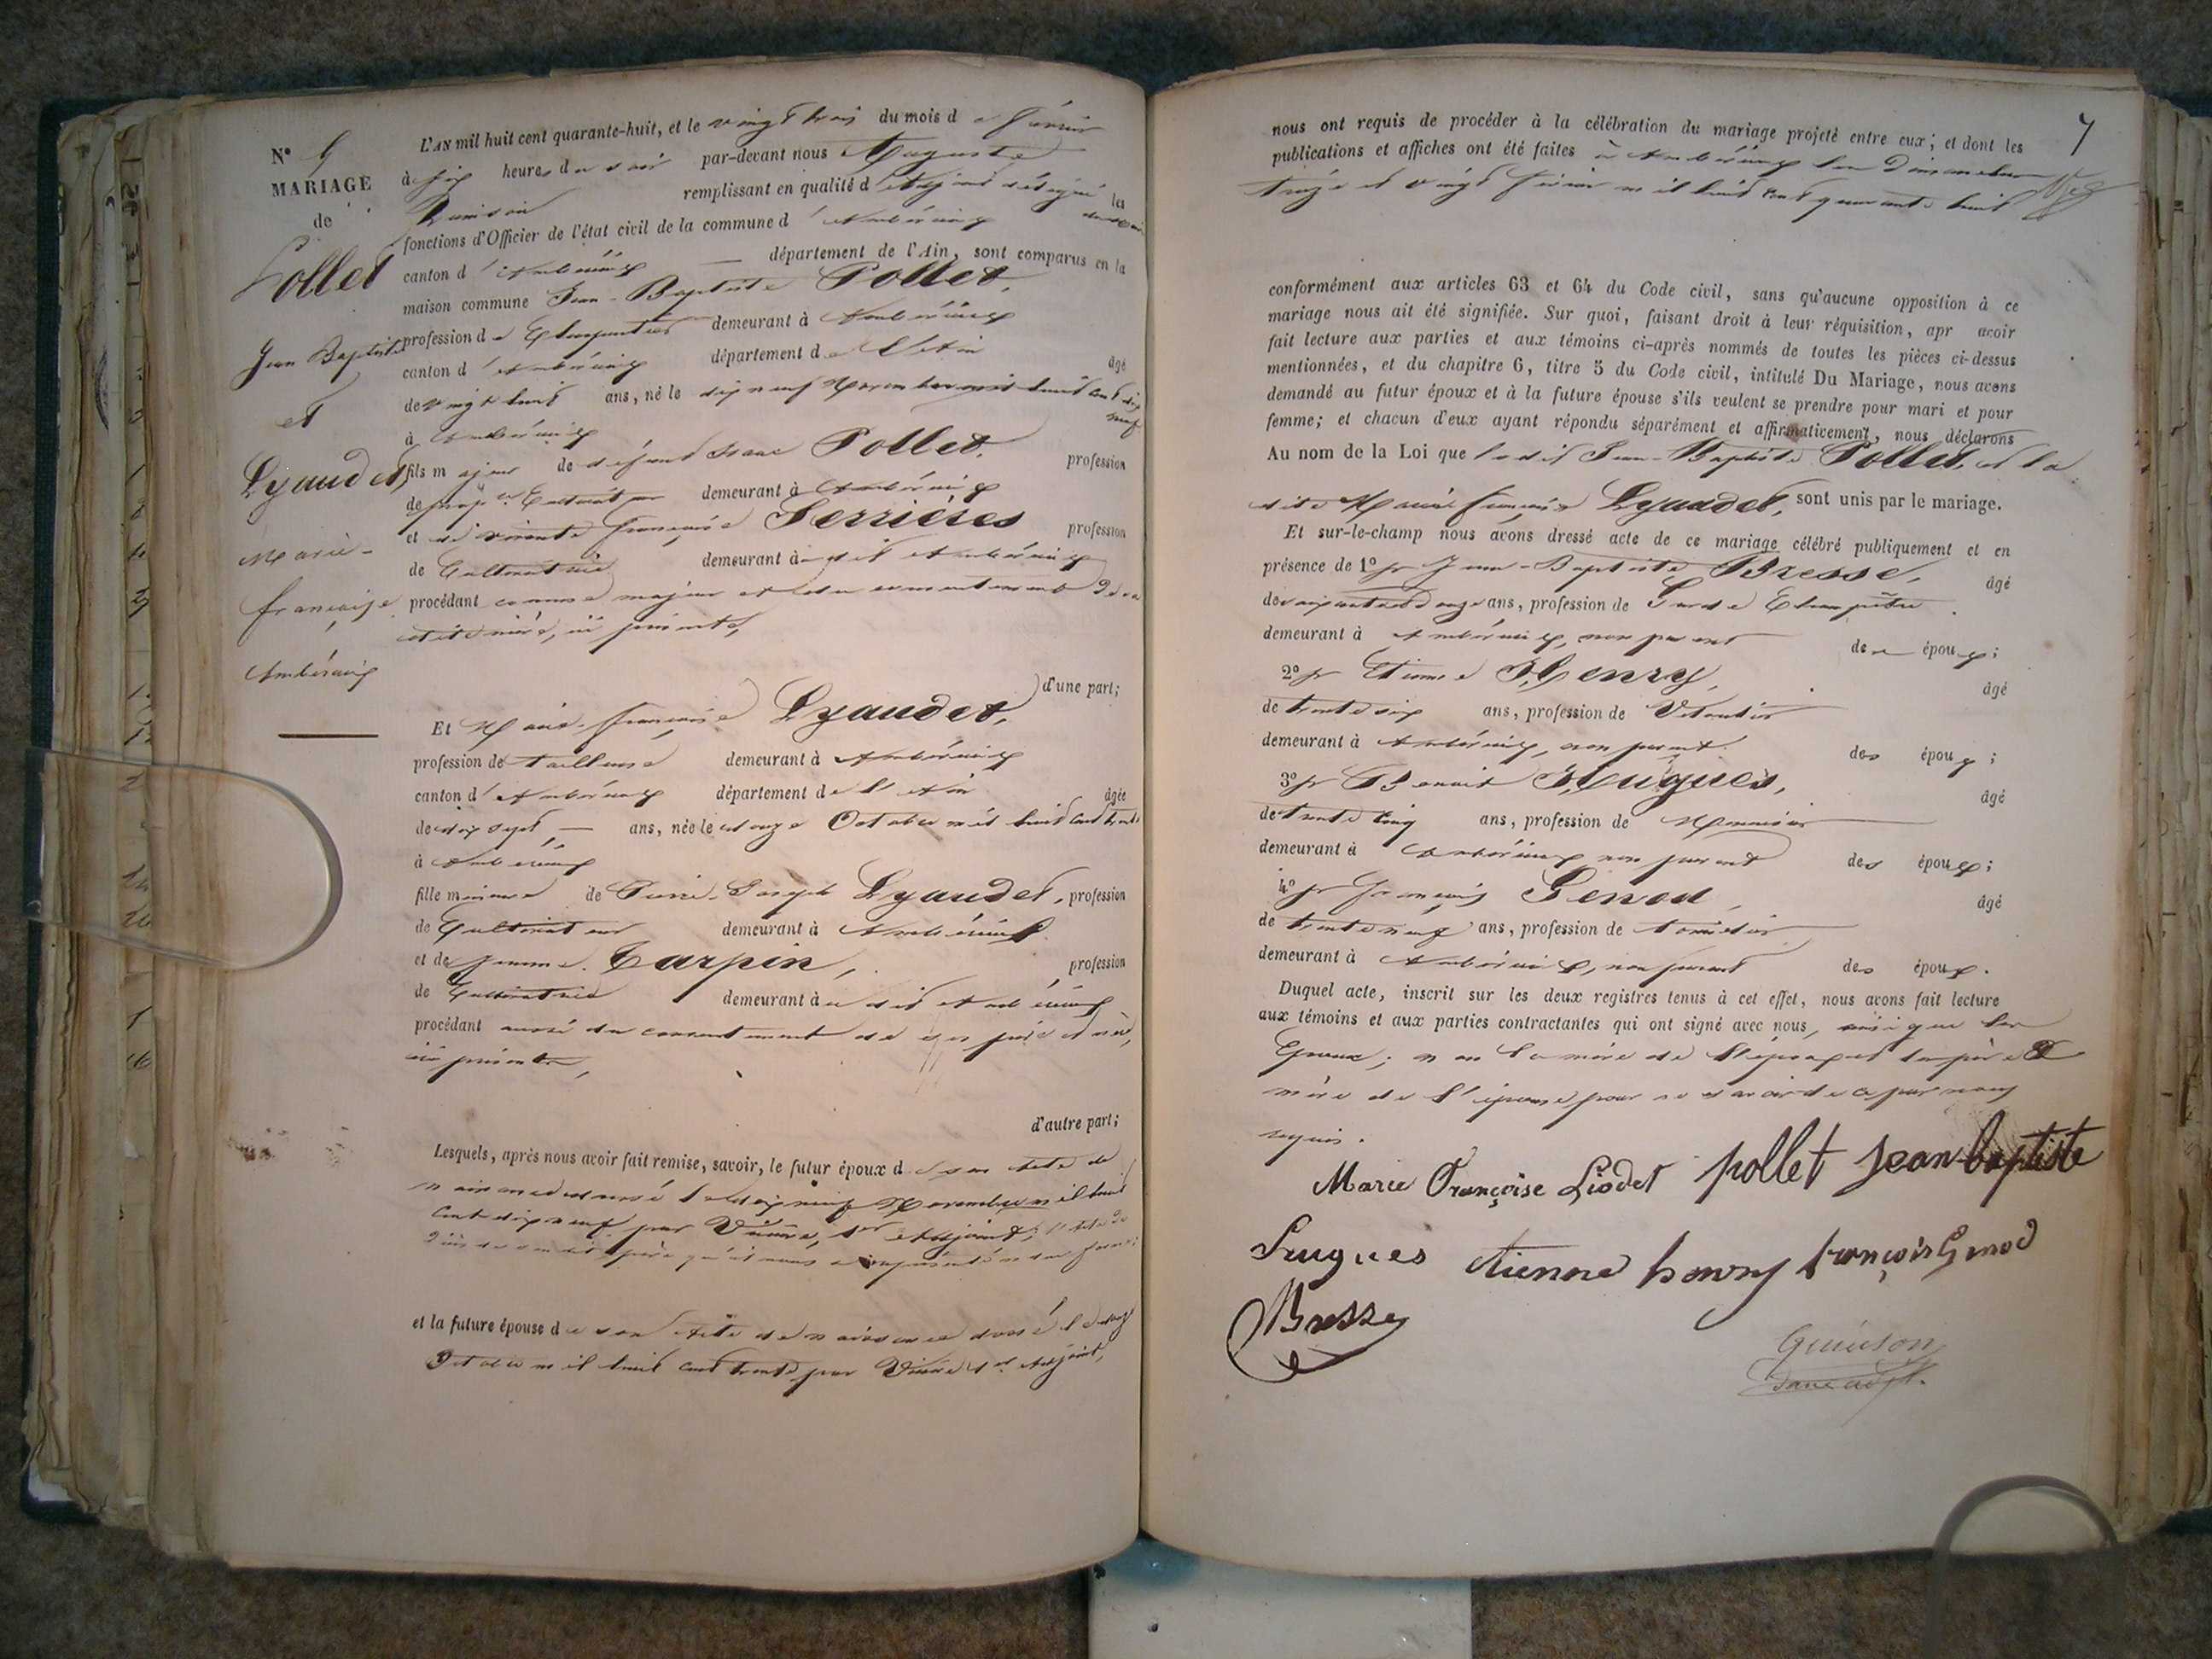 N° 
MARIAGE
de
Pollet
Jean Baptiste
et
Lyaudet,
Marie-
françoise
Ambérieux
L'AN mil huit cent quarante-huit, et le vingt trois du mois de février
à six heures du soir par-devant nous Auguste
remplissant en qualité d'Adjoint délégué les
fonctions d'Officier de l'état civil de la commune d'Ambérieux
canton d'Ambérieux — département de l'Ain, sont comparus en la
maison commune Jean-Baptiste Pollet,
profession de Charpentier demeurant à Ambérieux
canton d'Ambérieux département de l'Ain âgé
de vingt huit ans, né le dix neuf Novembre mil huit cent dix neuf
à Ambérieux
fils majeur de défunt Pollet, profession
de Cultivateur demeurant à Ambérieux
et de vivante françoise Serrières profession
de Cultivatrice demeurant à dit Ambérieux
procédant comme majeur et du consentement de sa
dite mère, ici présente,
d'une part;
Et Marie-françoise Lyaudet,
profession de tailleuse demeurant à Ambérieux
canton d'Ambérieux département de l'Ain âgée
de dix sept — ans, née le douze Octobre mil huit cent trente
à Ambérieux
fille mineure de Pierre-Joseph Lyaudet, profession
de Cultivateur demeurant à Ambérieux
et de Jeanne Carpin, profession
de Cultivatrice demeurant à u dit Ambérieux
procédant du consentement de ses père et mère,
ici présents,
d'autre part;
Lesquels, après nous avoir fait remise, savoir, le futur époux de son acte de
naissance dressé le dix neuf Novembre mil huit
cent dix neuf par 1er Adjoint, l'acte de
décès de son dit père
et la future épouse de son acte de naissance dressé le douze
Octobre mil huit cent trente par 1er Adjoint,
7
nous ont requis de procéder à la célébration du mariage projeté entre eux; et dont les
publications et affiches ont été faites à Ambérieux les Dimanches
treize et vingt février mil huit cent quarante huit
conformément aux articles 63 et 64 du Code civil, sans qu'aucune opposition à ce
mariage nous ait été signifiée. Sur quoi, faisant droit à leur réquisition, apr avoir
fait lecture aux parties et aux témoins ci-après nommés de toutes les pièces ci-dessus
mentionnées, et du chapitre 6, titre 5 du Code civil, intitulé Du Mariage, nous avons
demandé au futur époux et à la future épouse s'ils veulent se prendre pour mari et pour
femme; et chacun d'eux ayant répondu séparément et affirmativement, nous déclarons
Au nom de la Loi que ledit Jean-Baptiste Pollet, et la
dite Marie françoise Lyaudet, sont unis par le mariage.
Et sur-le-champ nous avons dressé acte de ce mariage célébré publiquement et en
présence de 1° Jean-Baptiste Bresse, âgé
de soixante douze ans, profession de Garde Champêtre
demeurant à Ambérieux, non parent des époux;
2° Etienne Henry, âgé
de trente six ans, profession de
demeurant à Ambérieux, non parent des époux;
3° Benoit Hugues, âgé
de trente cinq ans, profession de
demeurant à Ambérieux non parent des époux;
4° françois Genod, âgé
de trente neuf ans, profession de
demeurant à Ambérieux, non parent des époux.
Duquel acte, inscrit sur les deux registres tenus à cet effet, nous avons fait lecture
aux témoins et aux parties contractantes qui ont signé avec nous, ainsi que les
Epoux; non la mère de l'époux et les père &
mère de l'épouse pour ne savoir de ce par nous
requis.
Marie Françoise Liodet pollet jean-baptiste
hugues etienne henry françois Genod
Bresse